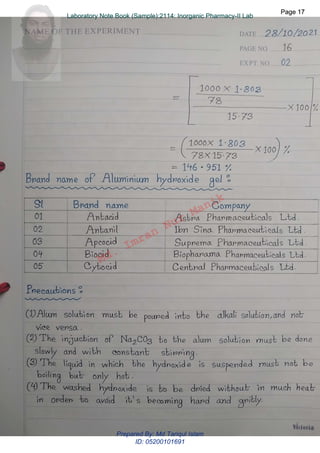 Laboratory Note Book (Sample):2114: Inorganic Pharmacy-II Lab
Page 17
NAME OF THE EXPERIMENT
DATE 28/10/2021
PAGE NO 16
EXPT. NO 02
= [ 1000 × 1.803 / 78 / 15.73 × 100 ] %
= ( 1000 × 1.803 / 78 × 15.73 × 100 ) %
= 146.951 %
Brand name of Aluminium hydroxide gel:
Sl Brand name Company
01 Antacid Astra Pharmaceuticals Ltd.
02 Antanil Ibn Sina Pharmaceuticals Ltd.
03 Apcocid Suprema Pharmaceuticals Ltd.
04 Biocid Biopharama Pharmaceuticals Ltd.
05 Cytocid Central Pharmaceuticals Ltd.
Precautions:
(1) Alum solution must be poured into the alkali solution, and not
vice versa.
(2) The injuction of Na2CO3 to the alum solution must be done
slowly and with constant stirring.
(3) The liquid in which the hydroxide is suspended must not be
boiling but only hot.
(4) The washed hydroxide is to be dried without in much heat
in order to avoid it's becoming hard and gritly.
Victoria
Prepared By: Md Tariqul Islam
ID: 05200101691